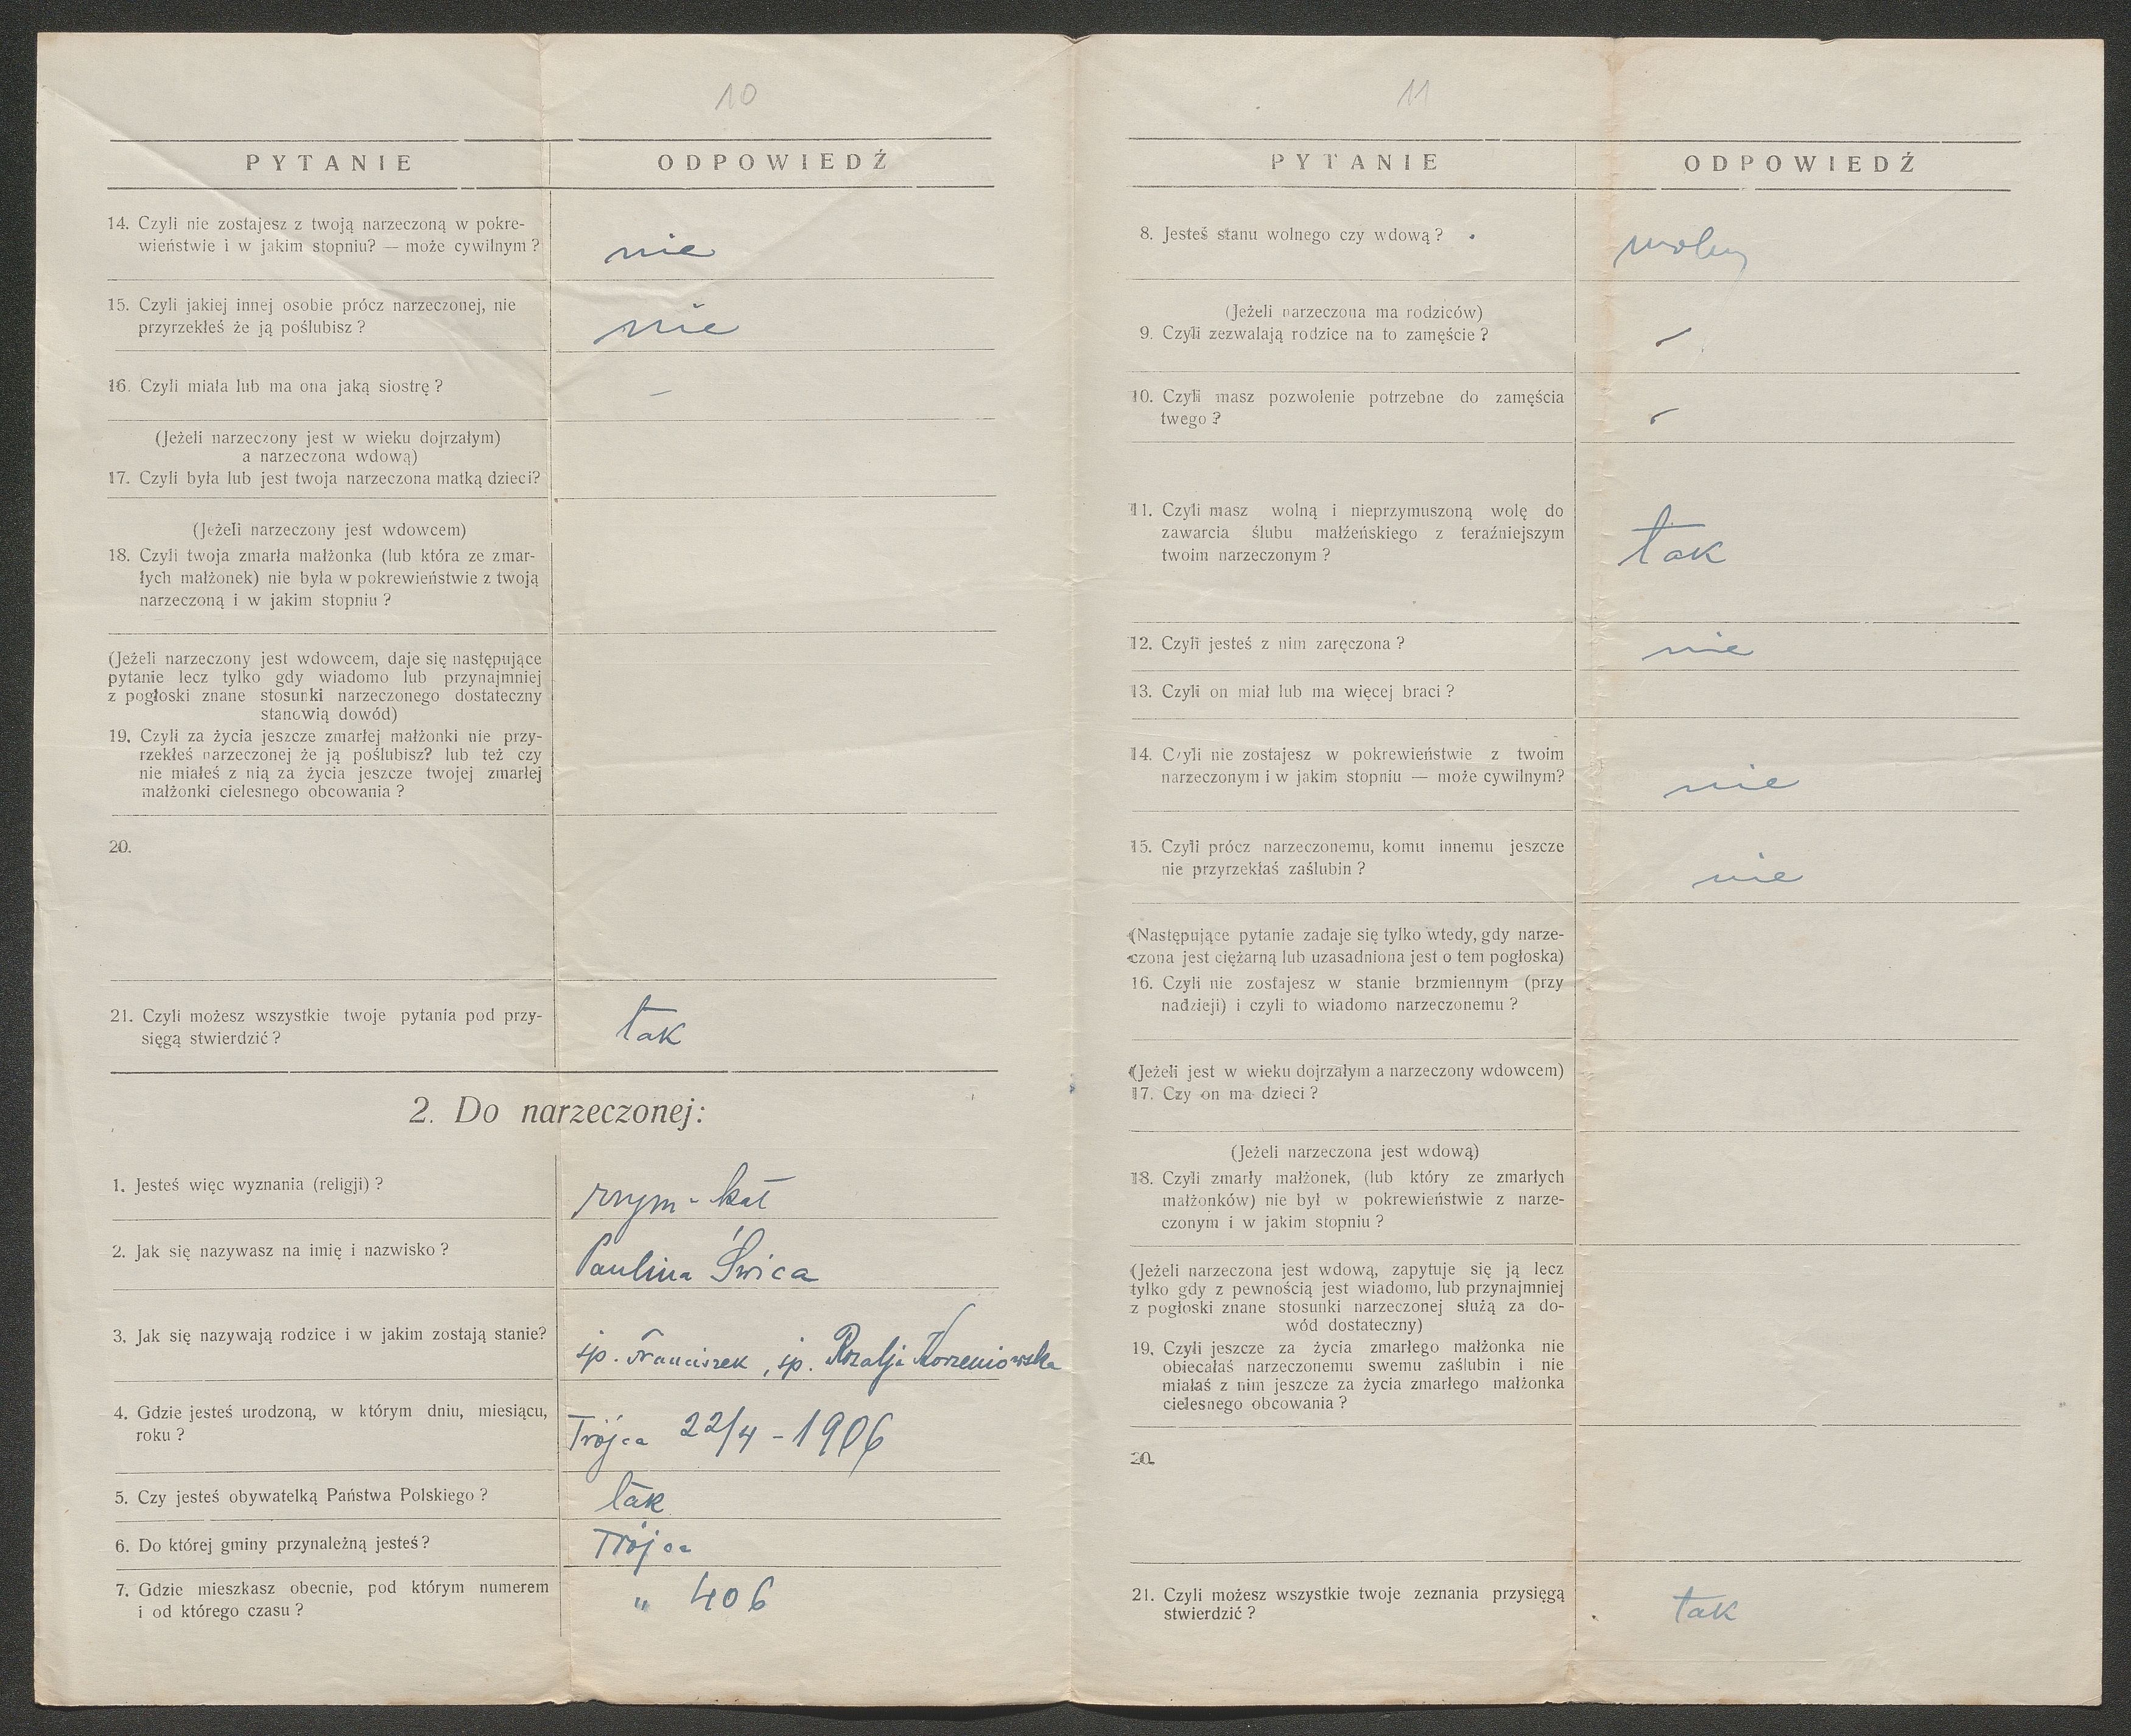 10
PYTANIE ODPOWIEDŹ
14. Czyli nie zostajesz z twoją narzeczoną w pokre-
wieństwie i w jakim stopniu? — może cywilnym?
nie
15. Czyli jakiej innej osobie prócz narzeczonej, nie
przyrzekłeś że ją poślubisz?
nie
16. Czyli miała lub ma ona jaką siostrę?
–
(Jeżeli narzeczony jest w wieku dojrzałym)
a narzeczona wdową)
17. Czyli była lub jest twoja narzeczona matką dzieci?
(Jeżeli narzeczony jest wdowcem)
18. Czyli twoja zmarła małżonka (lub która ze zmar-
łych małżonek) nie była w pokrewieństwie z twoją
narzeczoną i w jakim stopniu?
(Jeżeli narzeczony jest wdowcem, daje się następujące
pytanie lecz tylko gdy wiadomo lub przynajmniej
z pogłoski znane stosunki narzeczonego dostateczny
stanowią dowód)
19. Czyli za życia jeszcze zmarłej małżonki nie przy-
rzekłeś narzeczonej że ją poślubisz? lub też czy
nie miałeś z nią za życia jeszcze twojej zmarłej
małżonki cielesnego obcowania?
20.
21. Czyli możesz wszystkie twoje pytania pod przy-
sięgą stwierdzić?
tak
2. Do narzeczonej:
1. Jesteś więc wyznania (religji)?
rzym-kat
2. Jak się nazywasz na imię i nazwisko?
Paulina Świca
3. Jak się nazywają rodzice i w jakim zostają stanie?
śp. Franciszek, śp. Rozalja Korzeniowska
4. Gdzie jesteś urodzoną, w którym dniu, miesiącu,
roku?
Trójca 22/4 - 1906
5. Czy jesteś obywatelką Państwa Polskiego?
tak
6. Do której gminy przynależną jesteś?
Trójca
7. Gdzie mieszkasz obecnie, pod którym numerem
i od którego czasu?
" 406
11
PYTANIE ODPOWIEDŹ
8. Jesteś stanu wolnego czy wdową?
wolny
(Jeżeli narzeczona ma rodziców)
9. Czyli zezwalają rodzice na to zamęście?
–
10. Czyli masz pozwolenie potrzebne do zamęścia
twego?
–
11. Czyli masz wolną i nieprzymuszoną wolę do
zawarcia ślubu małżeńskiego z teraźniejszym
twoim narzeczonym?
tak
12. Czyli jesteś z nim zaręczona?
nie
13. Czyli on miał lub ma więcej braci?
14. Czyli nie zostajesz w pokrewieństwie z twoim
narzeczonym i w jakim stopniu — może cywilnym?
nie
15. Czyli prócz narzeczonemu, komu innemu jeszcze
nie przyrzekłaś zaślubin?
nie
(Następujące pytanie zadaje się tylko wtedy, gdy narze-
czona jest ciężarną lub uzasadniona jest o tem pogłoska)
16. Czyli nie zostajesz w stanie brzmiennym (przy
nadzieji) i czyli to wiadomo narzeczonemu?
(Jeżeli jest w wieku dojrzałym a narzeczony wdowcem)
17. Czy on ma dzieci?
(Jeżeli narzeczona jest wdową)
18. Czyli zmarły małżonek, (lub który ze zmarłych
małżonków) nie był w pokrewieństwie z narze-
czonym i w jakim stopniu?
(Jeżeli narzeczona jest wdową, zapytuje się ją lecz
tylko gdy z pewnością jest wiadomo, lub przynajmniej
z pogłoski znane stosunki narzeczonej służą za do-
wód dostateczny)
19. Czyli jeszcze za życia zmarłego małżonka nie
obiecałaś narzeczonemu swemu zaślubin i nie
miałaś z nim jeszcze za życia zmarłego małżonka
cielesnego obcowania?
20.
21. Czyli możesz wszystkie twoje zeznania przysięgą
stwierdzić?
tak